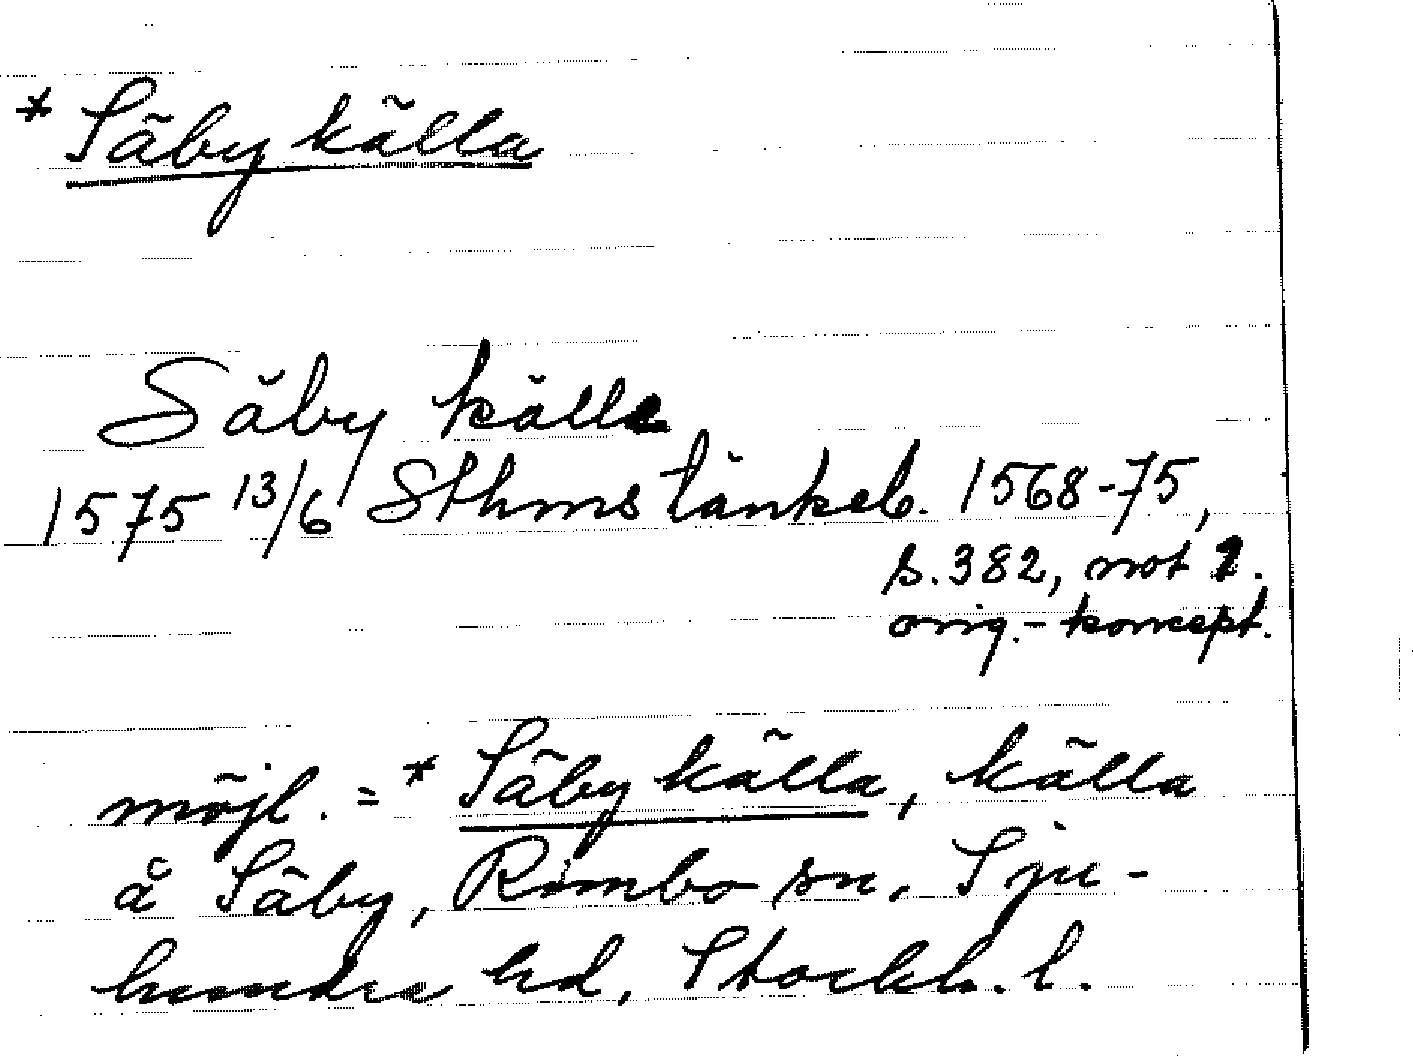 * Säby källa
Säby källa
1575 13/6 Sthms tänkeb. 1568-75,
s. 382, not 1.
orig.-koncept.
möjl. = * Säby källa, källa
å Säby, Rimbo sn, Sju-
hundra hd, Stockh. l.